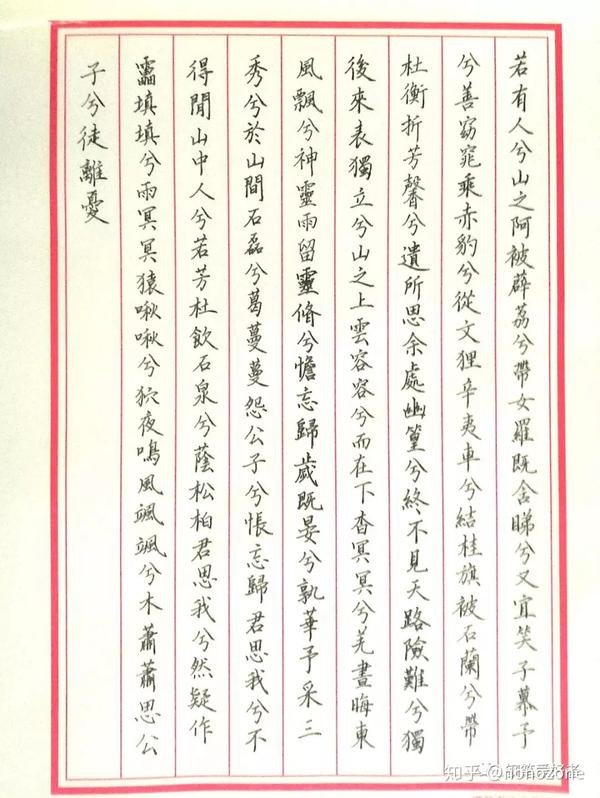 若有人兮山之阿被薜荔兮帶女羅既含睇兮又宜笑子慕予
兮善窈窕乘赤豹兮從文狸辛夷車兮結桂旗被石蘭兮帶
杜衡折芳馨兮遺所思余處幽篁兮終不見天路險難兮獨
後來表獨立兮山之上雲容容兮而在下杳冥冥兮羌晝晦東
風飄兮神靈雨留靈脩兮憺忘歸歲既晏兮孰華予采三
秀兮於山間石磊兮葛蔓蔓怨公子兮悵忘歸君思我兮不
得閒山中人兮若芳杜飲石泉兮蔭松柏君思我兮然疑作
靁填填兮雨冥冥猿啾啾兮狖夜鳴風颯颯兮木蕭蕭思公
子兮徒離憂
知乎 @nonozone